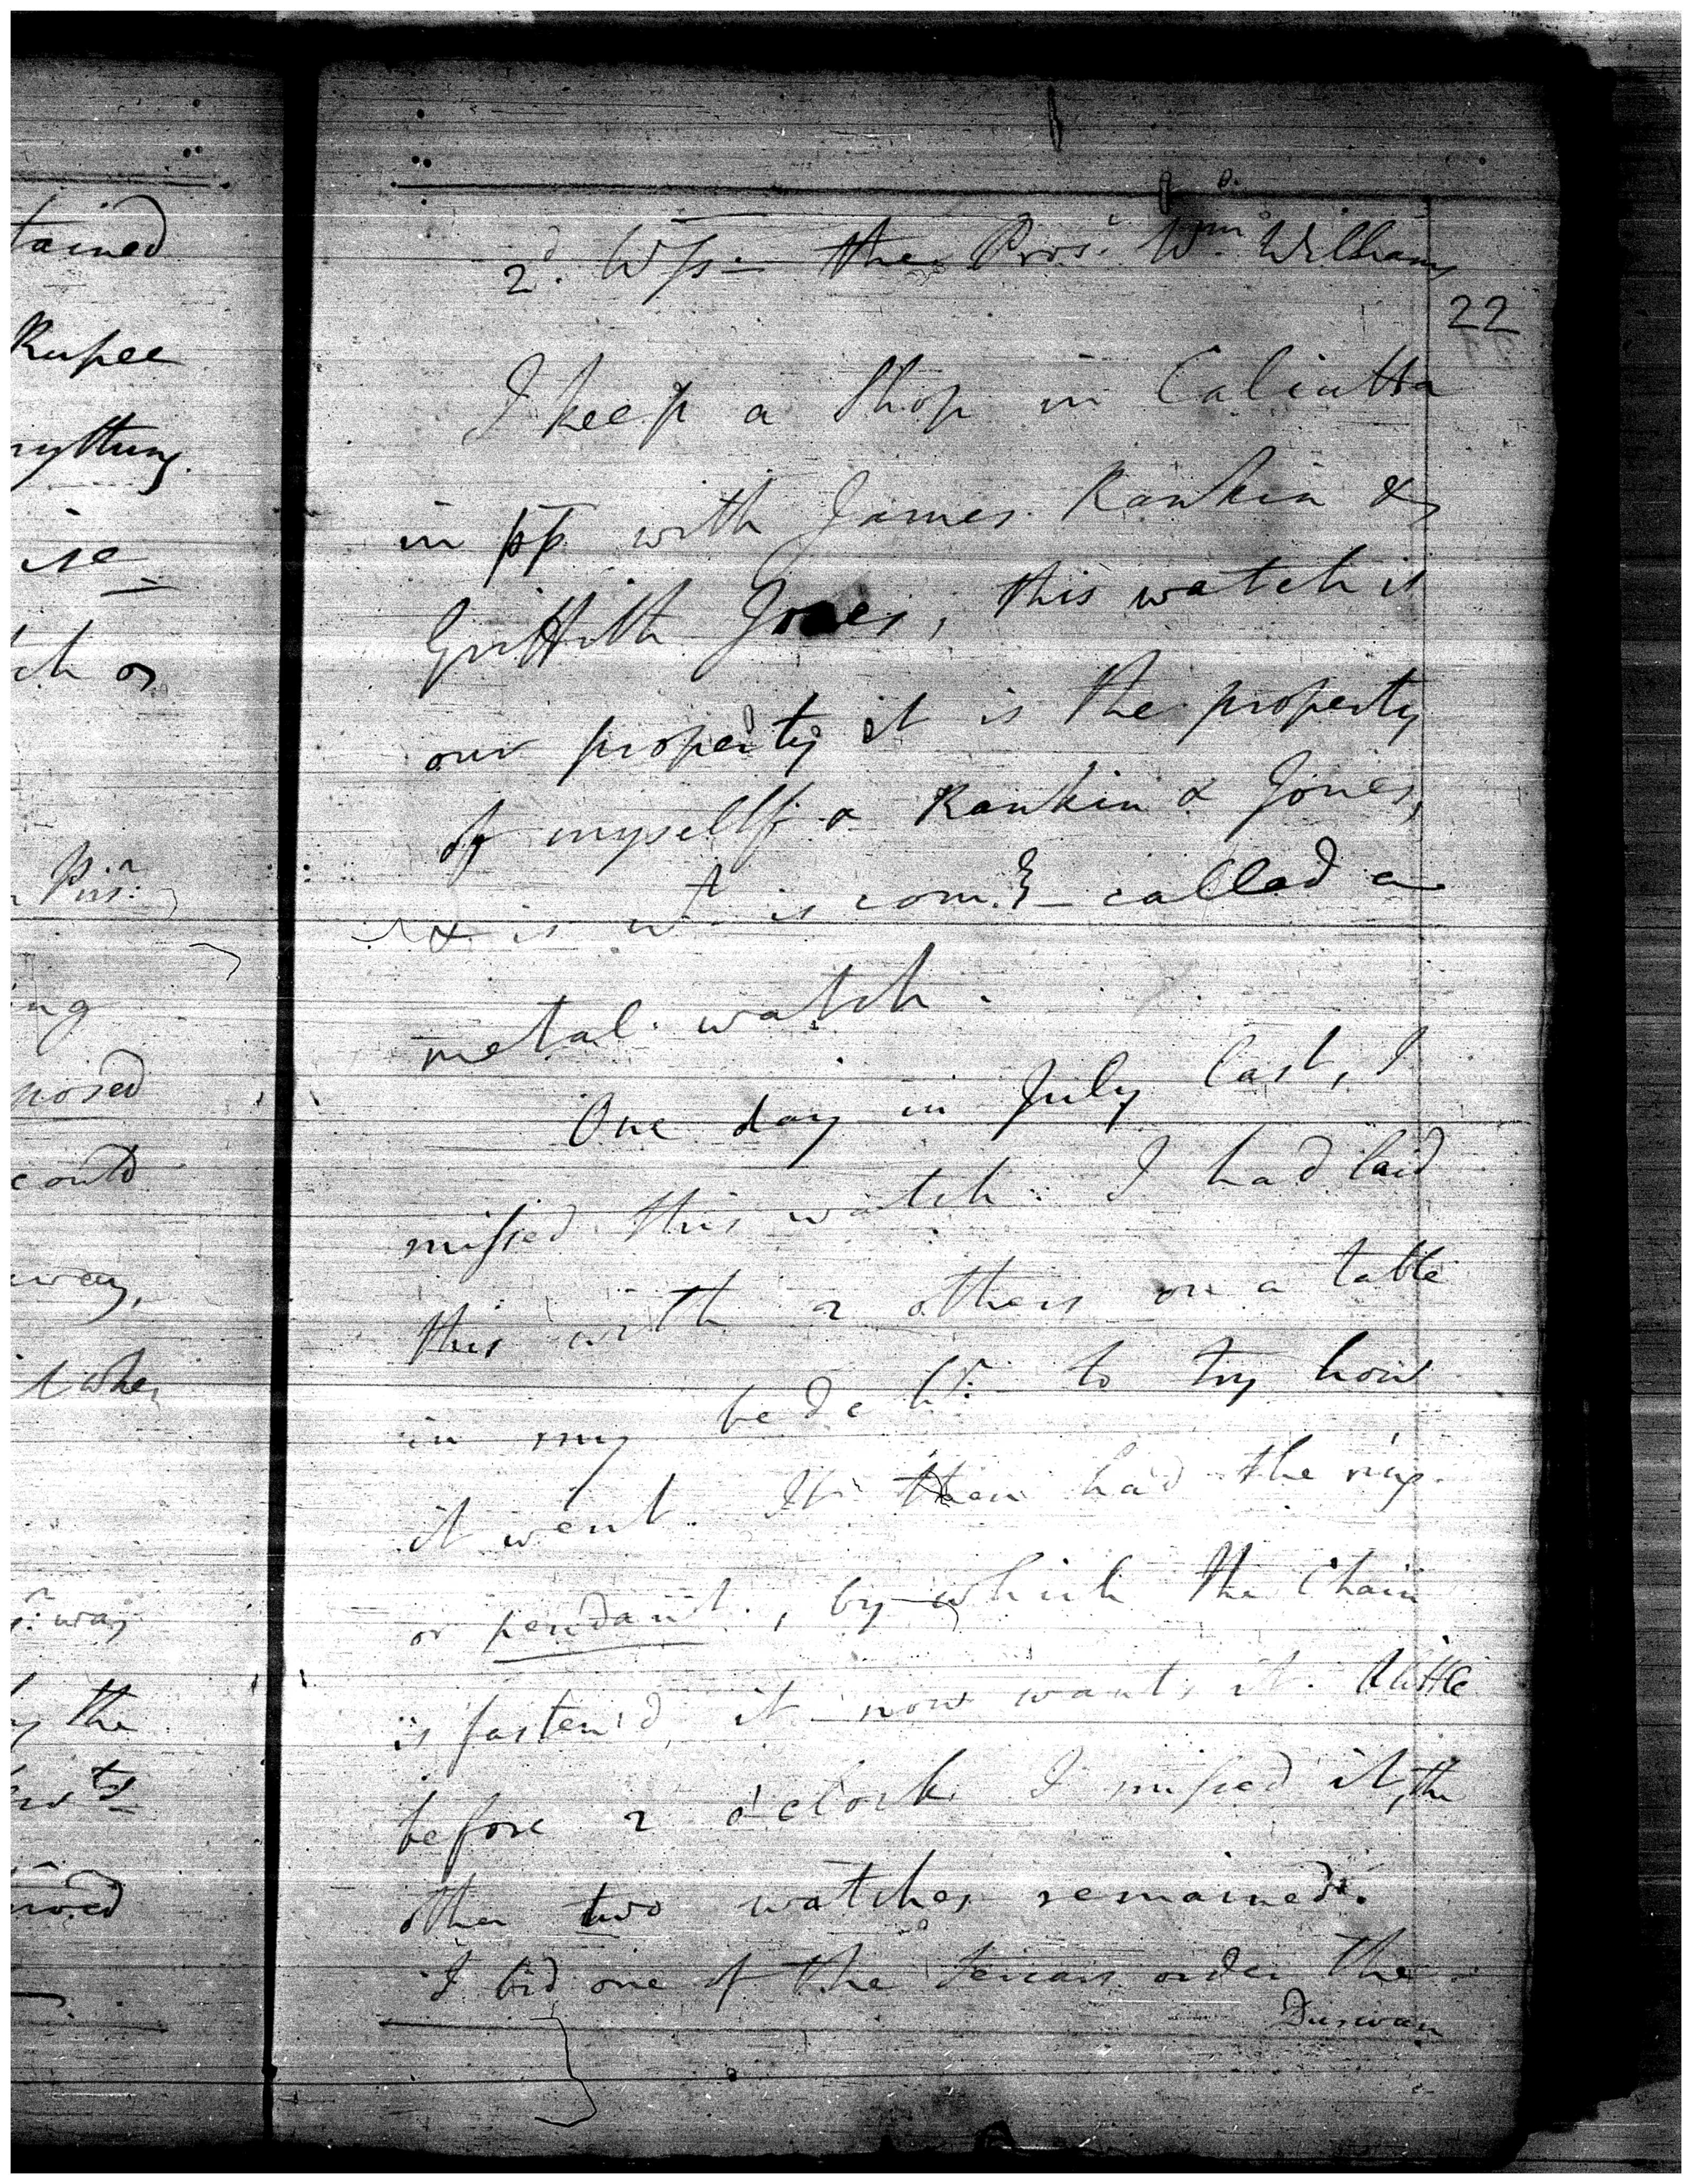 tained
Rupee
rything
ise
tch or
Pris.r
ng
posed
could
way,
t when
r. was
by the
2d. Wss. the Pros.r Wm. Williams
22
I keep a Shop in Calcutta
in pp with James Rankin &
Griffith Jones, this watch is
our property it is the property
of myself & Rankin & Jones,
& is wt is com.y called a
metal watch.
One day in July last, I
missed this watch. I had laid
this with 2 others on a table
in my bed ch.r to try how
it went. It then had the ring
or pendant, by which the Chain
is fasten'd it now wants it. A little
before 2 o'clock I missed it, the
other two watches remained.
I bid one of the Sircars order the
Durwan